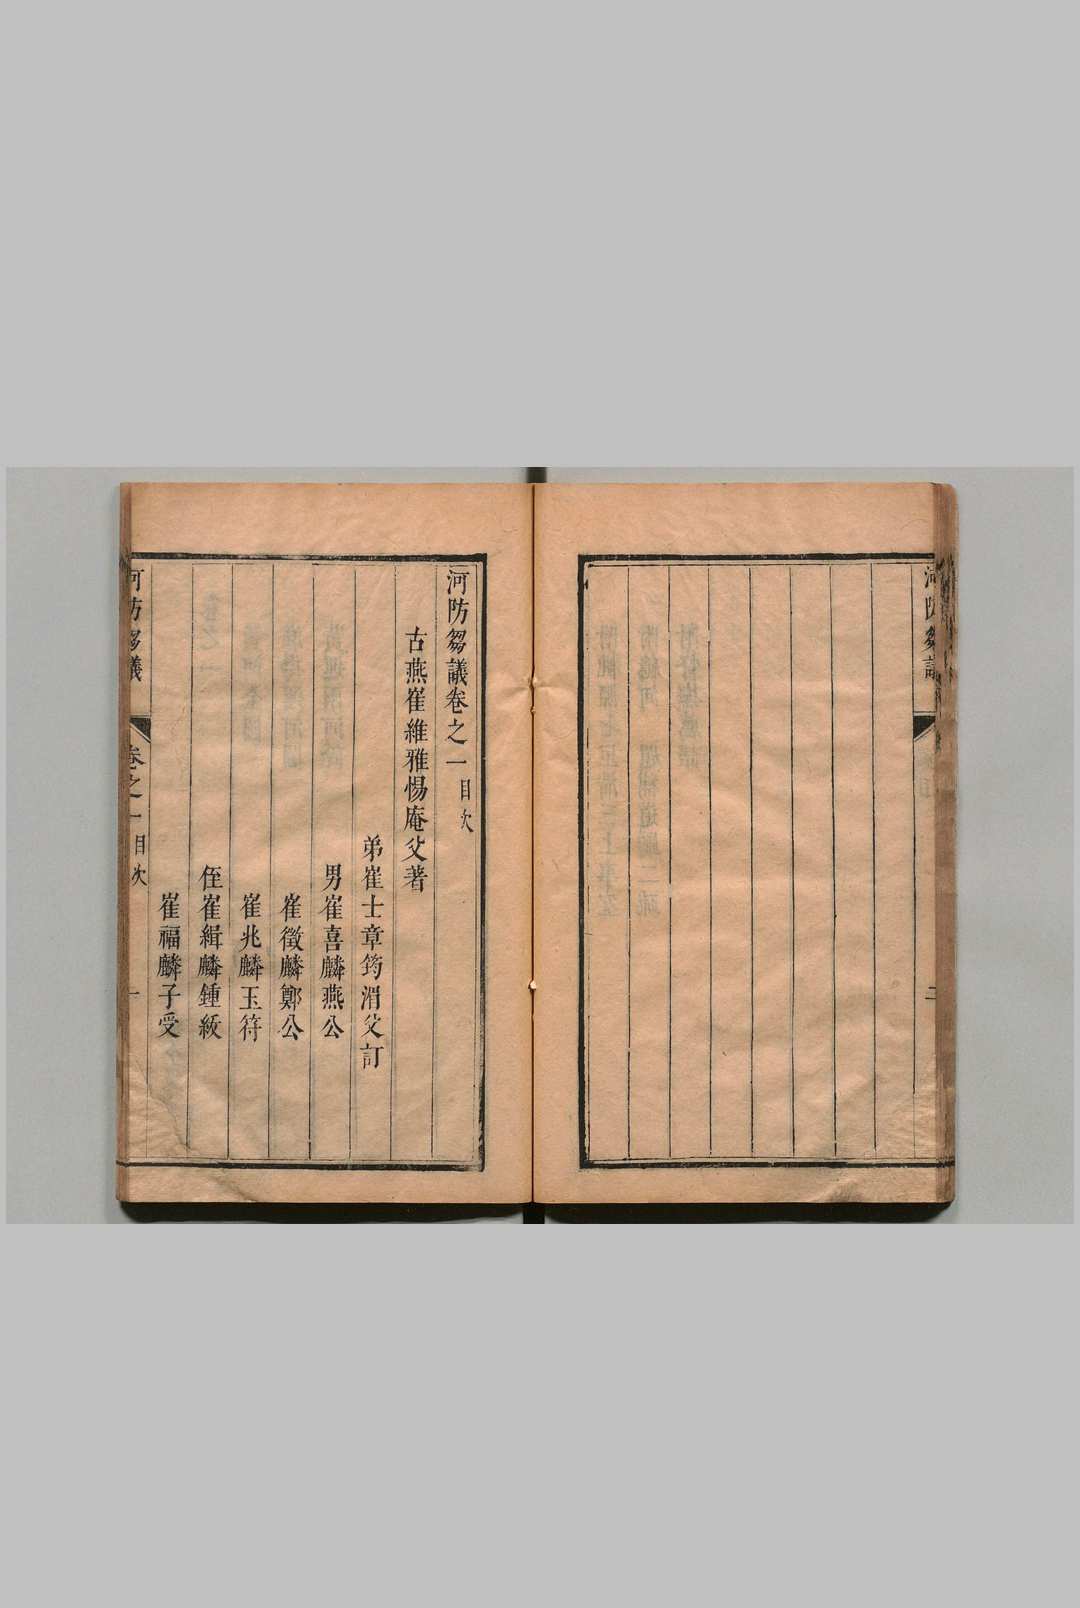 河防芻議
二
河防芻議卷之一目次
古燕崔維雅惕庵父著
弟崔士章筠滑父訂
男崔喜麟燕公
崔徵麟鄭公
崔兆麟玉符
侄崔緝麟鍾紱
崔福麟子受
河防芻議
卷之一目次
一